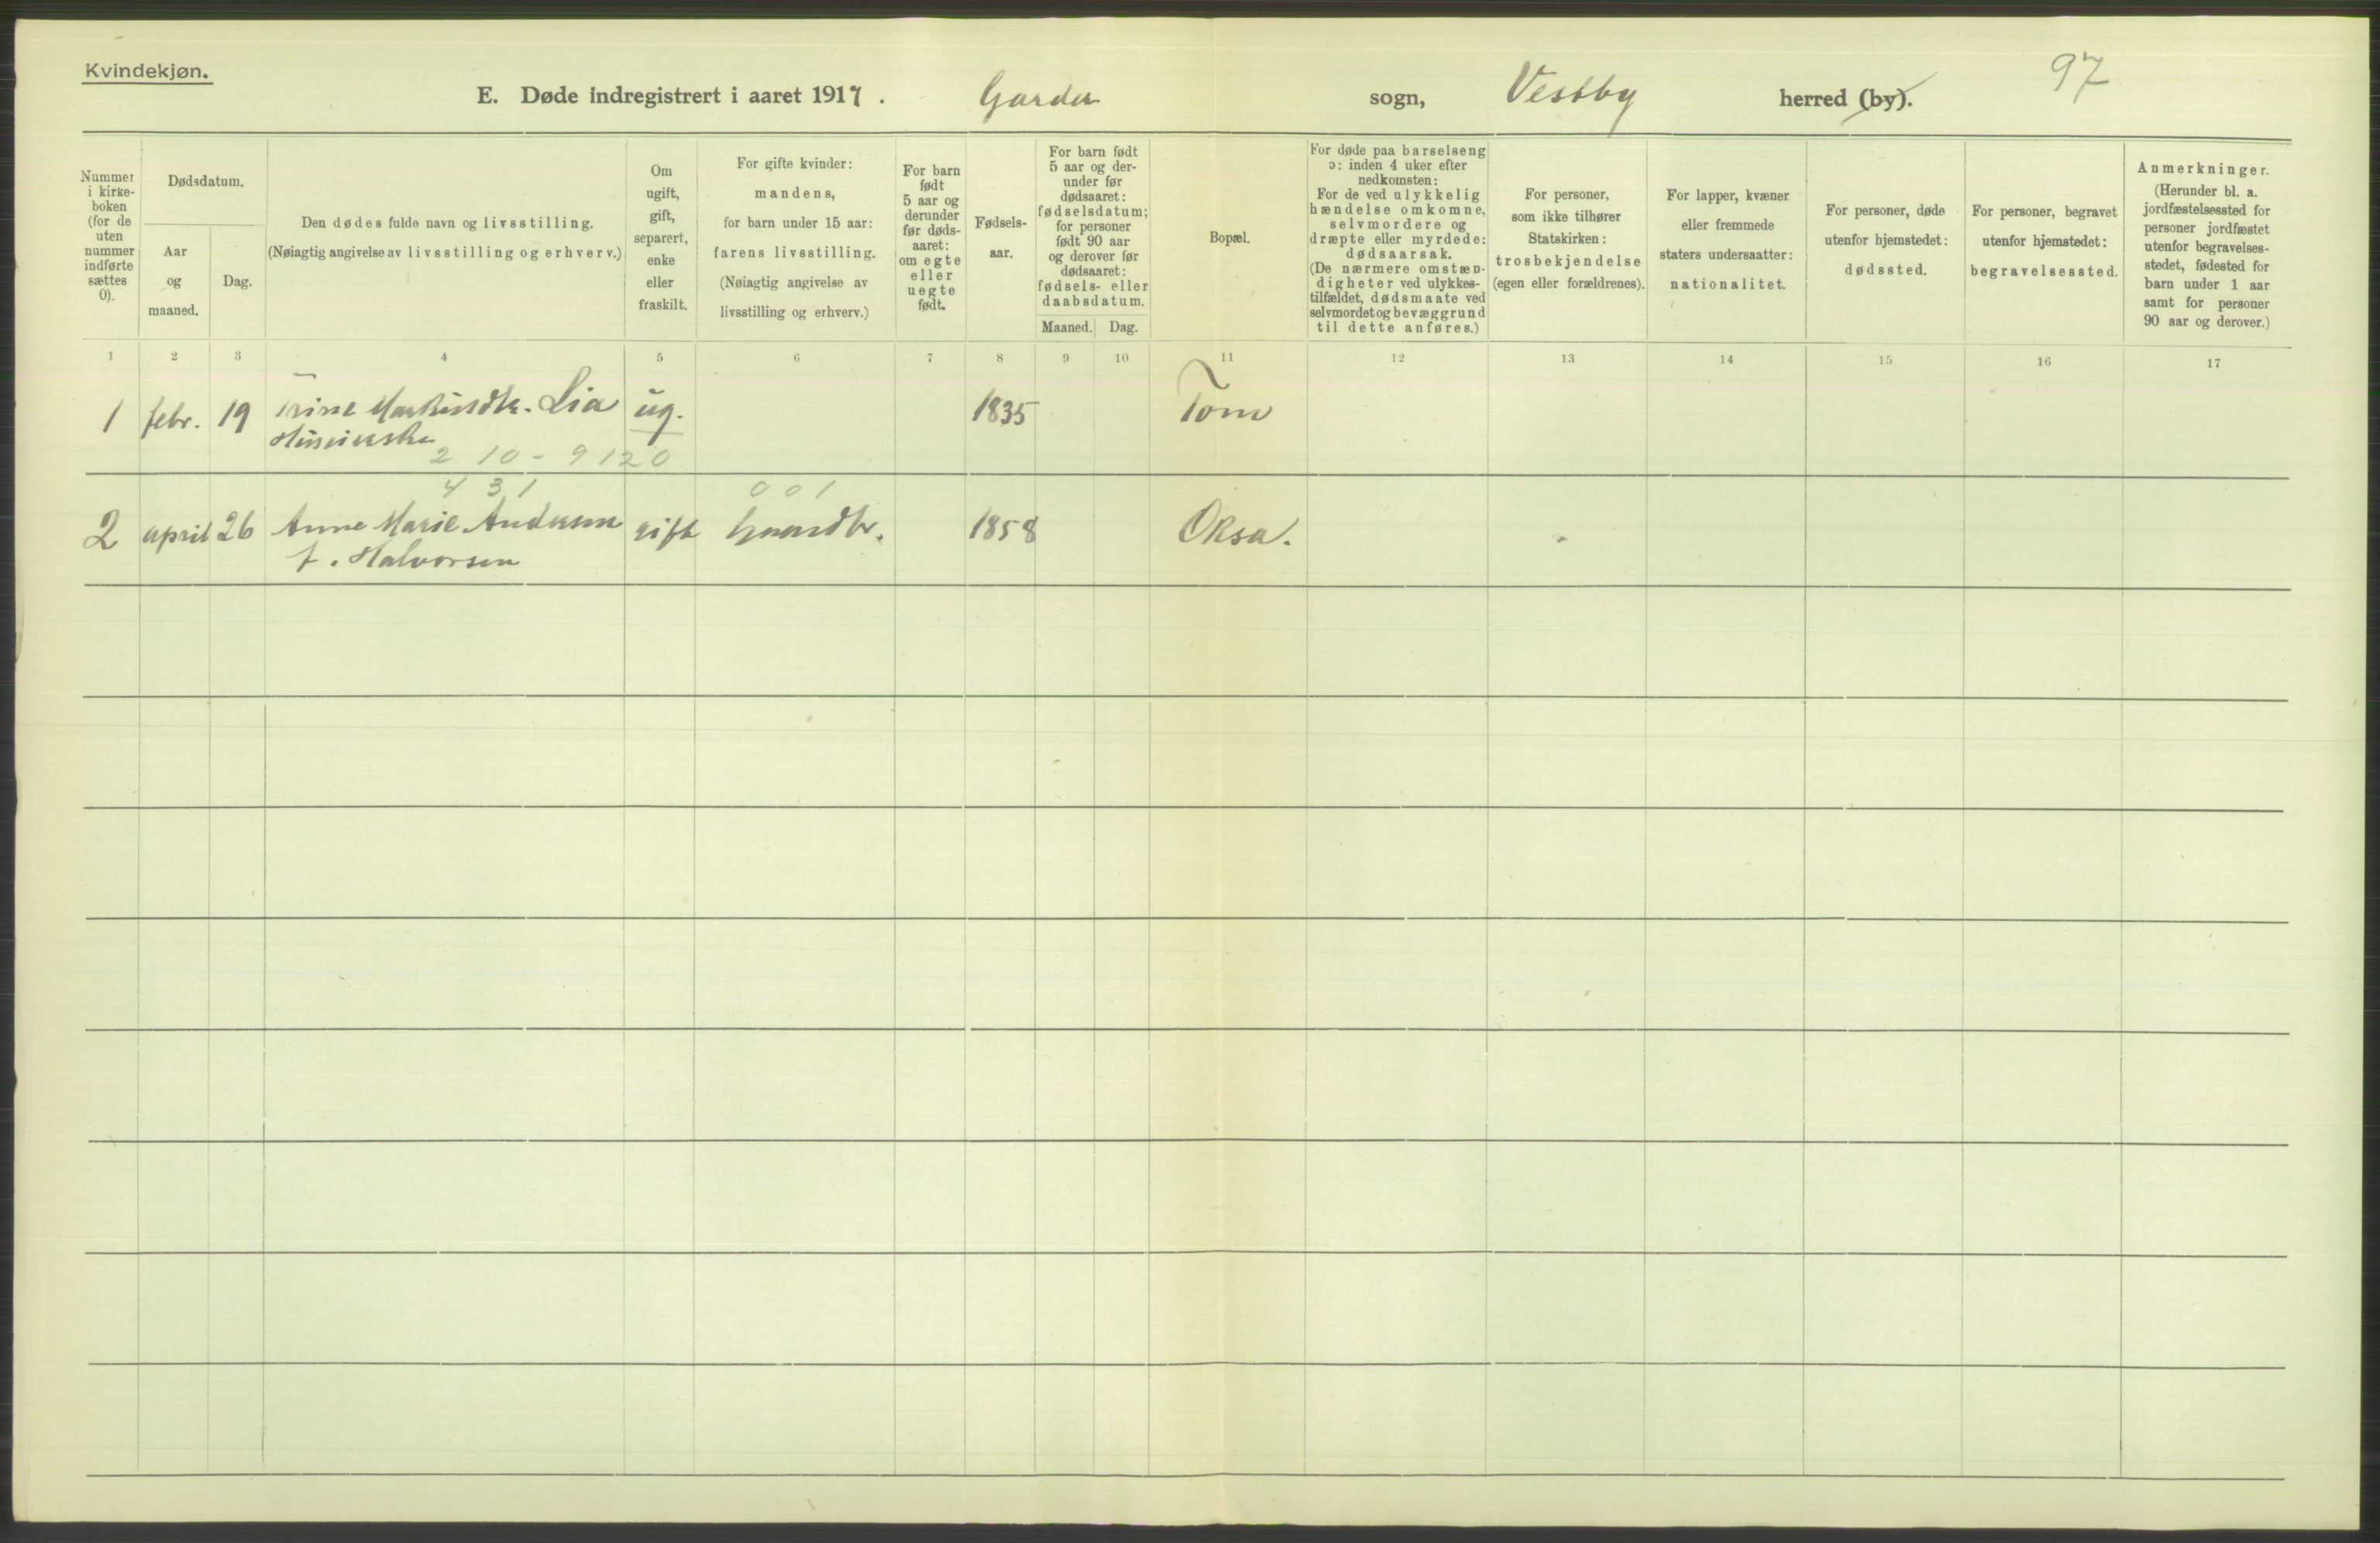 Kvindekjøn.
E. Døde indregistrert i aaret 1917. Garder sogn, Vestby herred (by).
97
Nummer
i kirke-
boken
(for de
uten
nummer
indførte
sættes
0).
Dødsdatum.
Aar
og
maaned.
Dag.
Den dødes fulde navn og livsstilling.
(Nøiagtig angivelse av livsstilling og erhverv.)
Om
ugift,
gift,
separert,
enke
eller
fraskilt.
For gifte kvinder:
mandens,
for barn under 15 aar:
farens livsstilling.
(Nøiagtig angivelse av
livsstilling og erhverv.)
For barn
født
5 aar og
derunder
før døds-
aaret:
om egte
eller
uegte
født.
Fødsels-
aar.
For barn født
5 aar og der-
under før
dødsaaret:
fødselsdatum;
for personer
født 90 aar
og derover før
dødsaaret:
fødsels- eller
daabsdatum.
Maaned. Dag.
Bopæl.
For døde paa barselseng
ɔ: inden 4 uker efter
nedkomsten:
For de ved ulykkelig
hændelse omkomne,
selvmordere og
dræpte eller myrdede:
dødsaarsak.
(De nærmere omstæn-
digheter ved ulykkes-
tilfældet, dødsmaate ved
selvmordet og bevæggrund
til dette anføres.)
For personer,
som ikke tilhører
Statskirken:
trosbekjendelse
(egen eller forældrenes).
For lapper, kvæner
eller fremmede
staters undersaatter:
nationalitet.
For personer, døde
utenfor hjemstedet:
dødssted.
For personer, begravet
utenfor hjemstedet:
begravelsessted.
Anmerkninger.
(Herunder bl. a.
jordfæstelsessted for
personer jordfæstet
utenfor begravelses-
stedet, fødested for
barn under 1 aar
samt for personer
90 aar og derover.)
1 2 3 4 5 6 7 8 9 10 11 12 13 14 15 16 17
1 febr. 19 Trine Lia ug. 1835 Tom
2 10 - 9 120
4 3 1 0 0 1
2 april 26 Anne Marie Andersen gift Gaardbr. 1858 Oksa.
f. Halvorsen